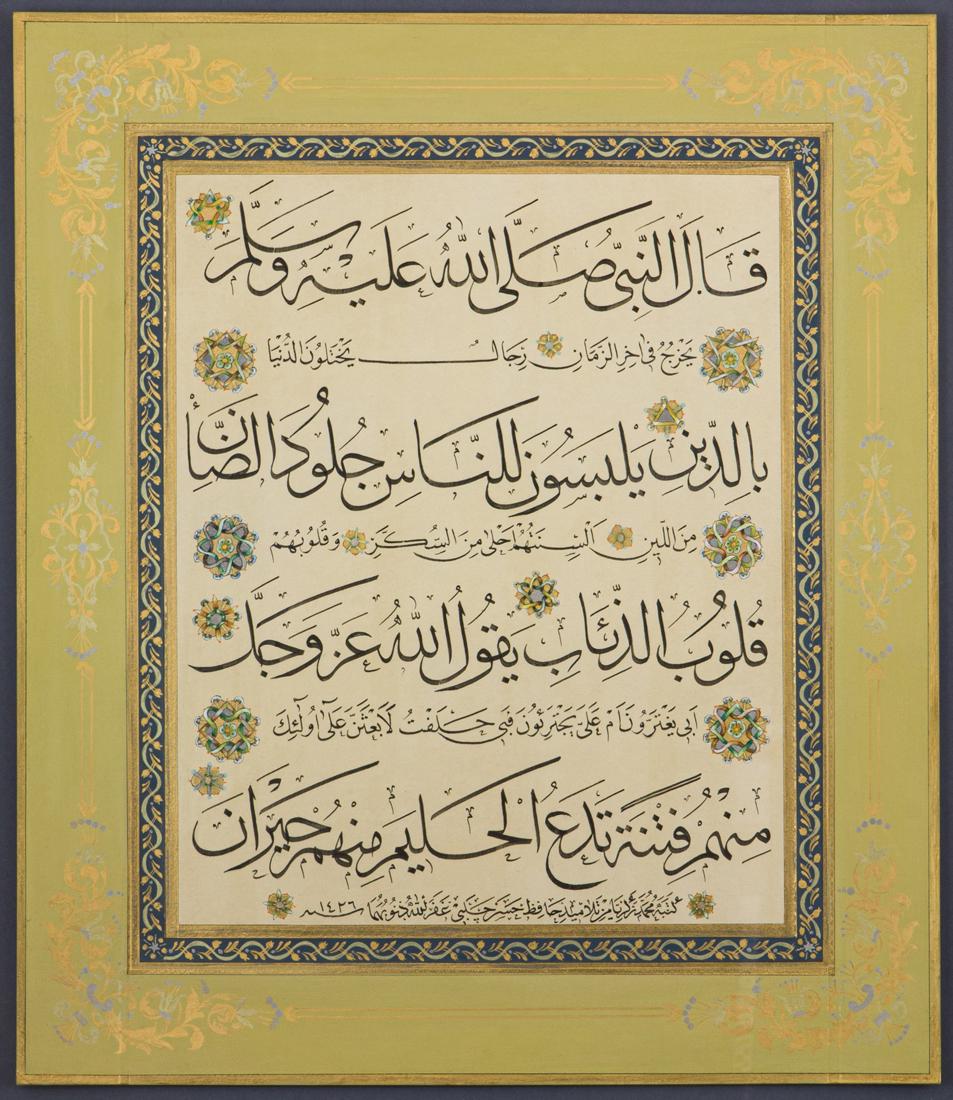 قَالَ النَّبِيُّ صَلَّى اللهُ عَلَيْهِ وَسَلَّمَ
يَخْرُجُ فِي اٰخِرِ الزَّمَانِ رِجَالٌ يَخْتِلُونَ الدُّنْيَا
بِالدِّينِ يَلْبَسُونَ لِلنَّاسِ جُلُودَ الضَّأْنِ
مِنَ اللِّينِ اَلْسِنَتُهُمْ اَحْلٰى مِنَ السُّكَّرِ وَقُلُوبُهُمْ
قُلُوبُ الذِّئَابِ يَقُولُ اللهُ عَزَّ وَجَلَّ
اَبِي يَغْتَرُّونَ اَمْ عَلَيَّ يَجْتَرِئُونَ فَبِي حَلَفْتُ لَاَبْعَثَنَّ عَلٰى اُولٰٓئِكَ
مِنْهُمْ فِتْنَةً تَدَعُ الْحَلِيمَ مِنْهُمْ حَيْرَانَ
كتبه محمد من تلاميذ حافظ حسن چلبي غفر الله ذنوبهما ١٤٢٦